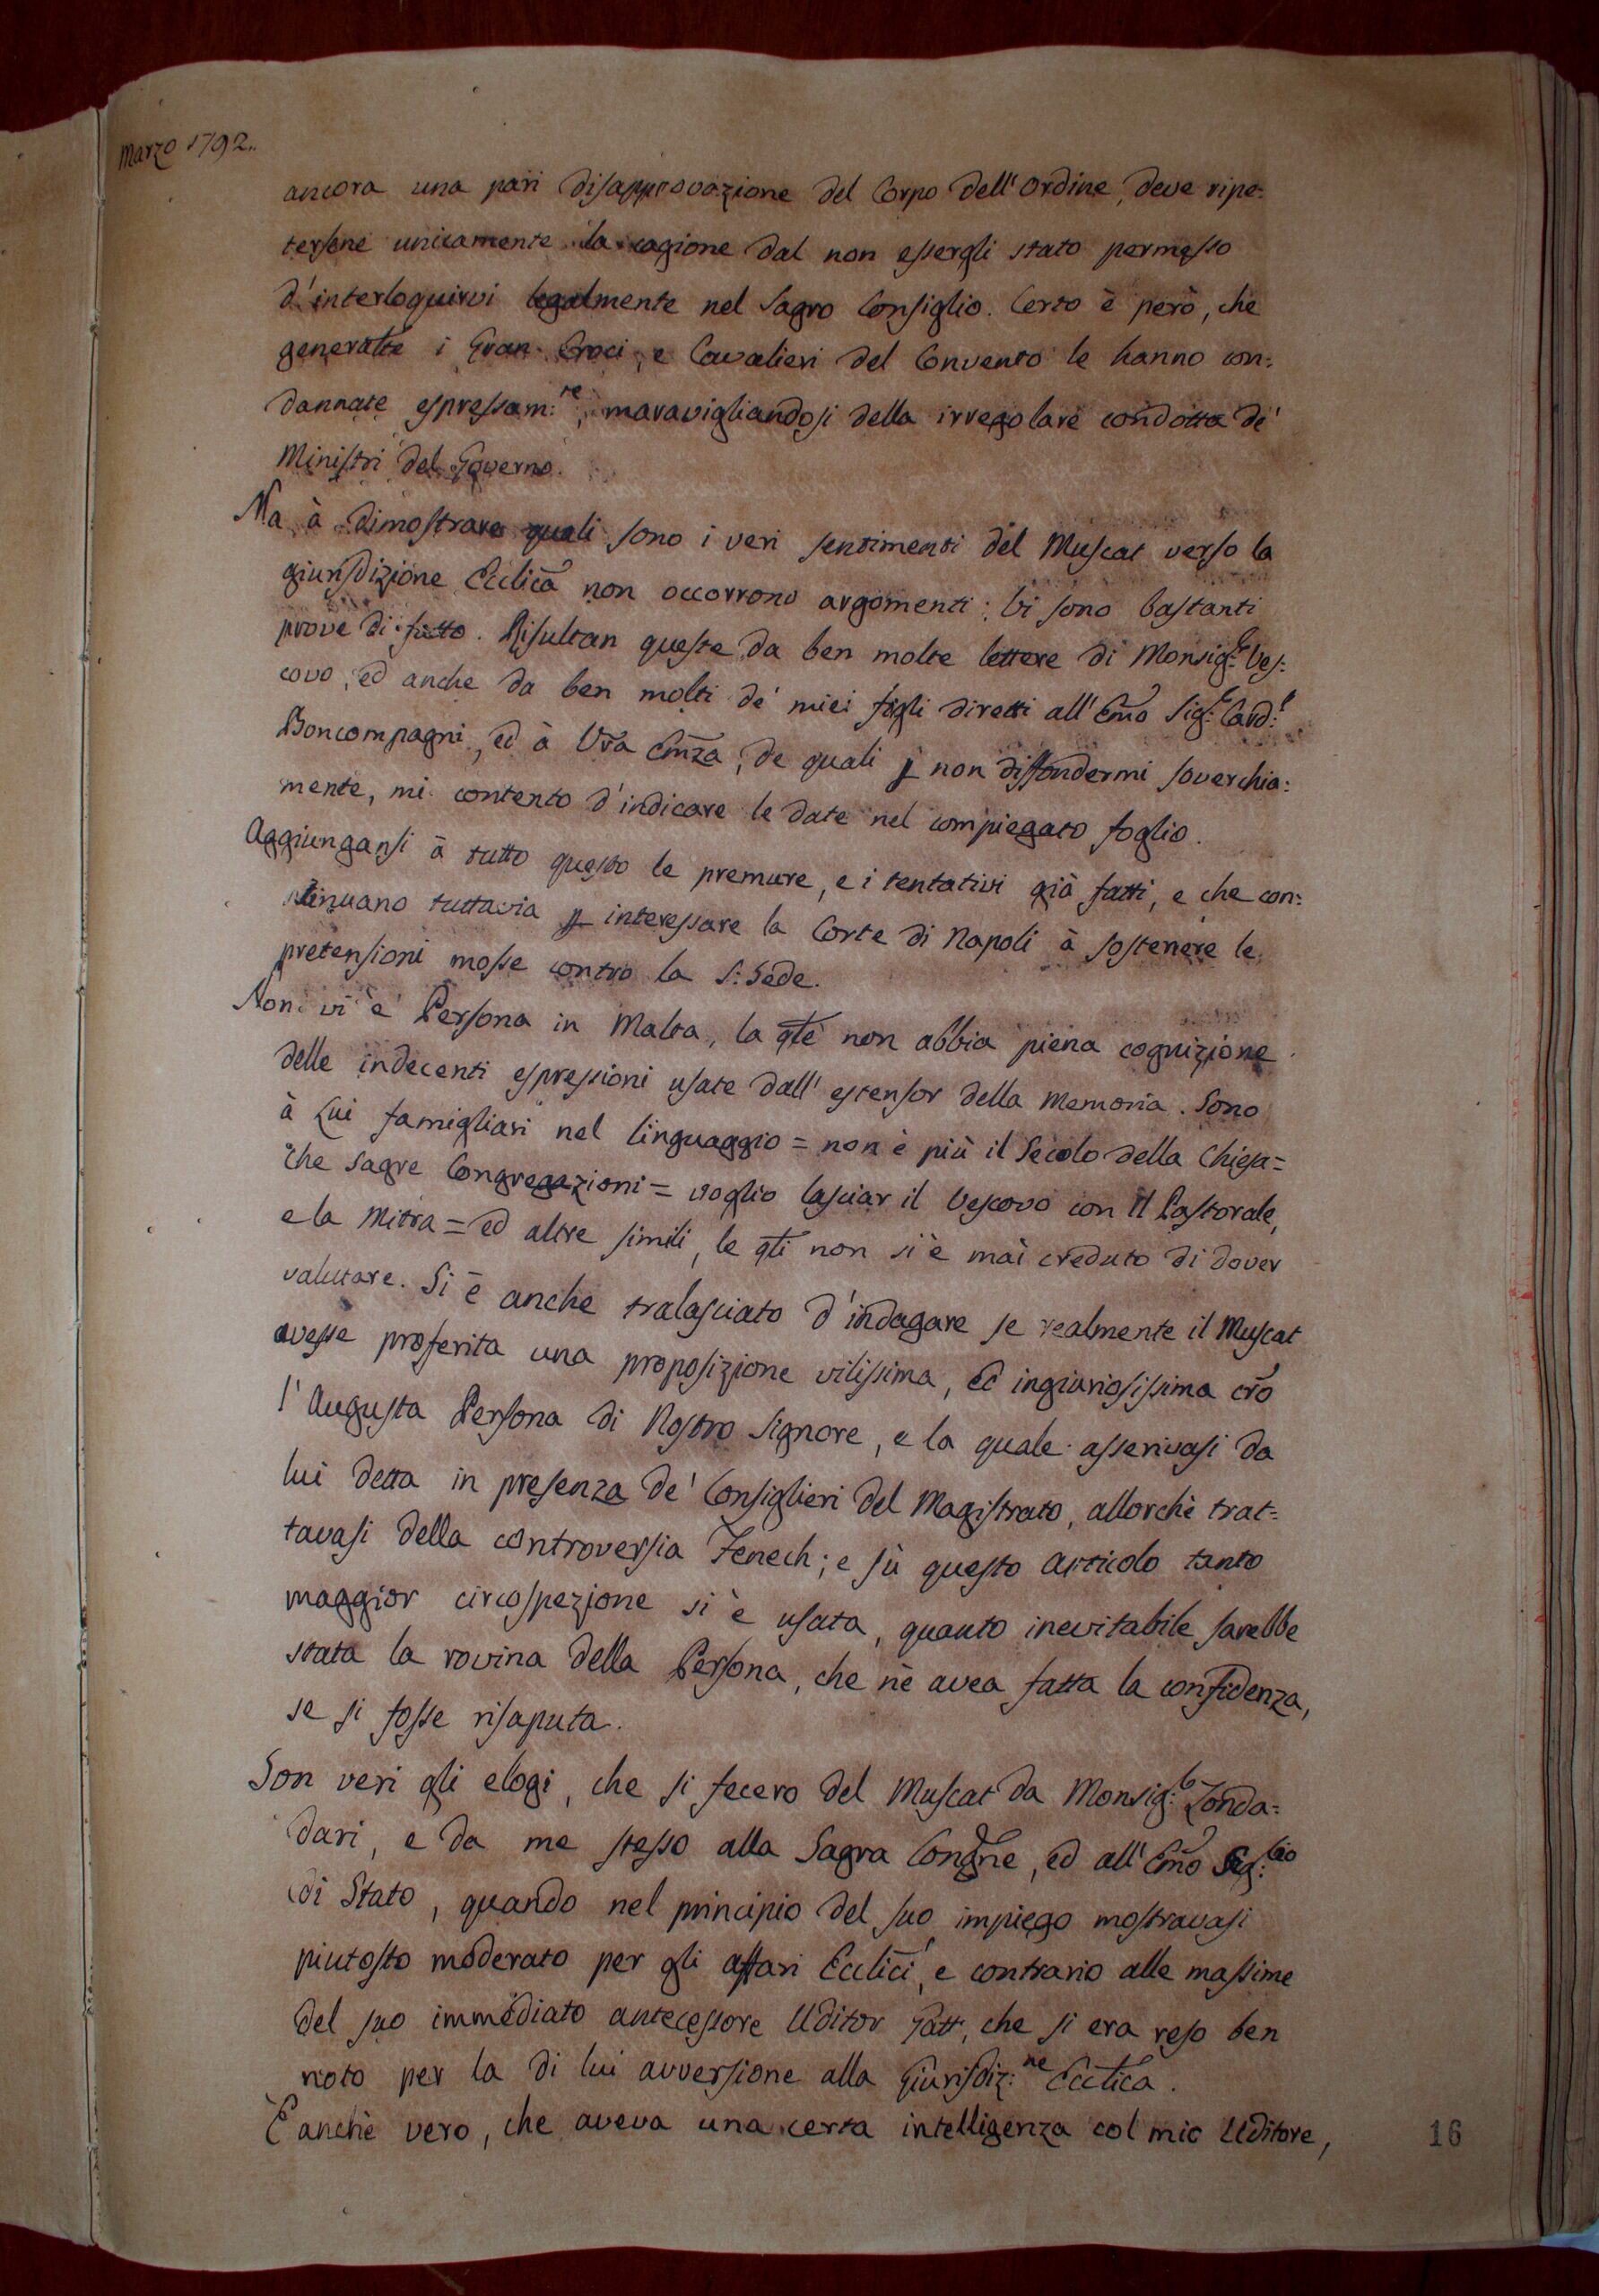 Marzo 1792.
ancora una pari disapprovazione del Corpo dell'Ordine, deve ripe:
tersene unicamente la cagione dal non essergli stato permesso
d'interloquirvi legalmente nel Sagro Consiglio. Certo è però, che
generalte i Gran Croci, e Cavalieri del Convento le hanno con:
dannate espressam:te, maravigliandosi della irregolare condotta de'
Ministri del Governo.
Ma à dimostrare quali sono i veri sentimenti del Muscat verso la
giurisdizione Ecclica non occorrono argomenti: Vi sono bastanti
prove di fatto. Risultan queste da ben molte lettere di Monsig:r Ves:
covo, ed anche da ben molti de' miei fogli diretti all'Emo Sig:r Card:l
Boncompagni, ed à Vra Emza, de quali p non diffondermi soverchia:
mente, mi contento d'indicare le date nel compiegato foglio.
Aggiungansi à tutto questo le premure, e i tentativi già fatti, e che con:
tinuano tuttavia p interessare la Corte di Napoli à sostenere le
pretensioni mosse contro la S: Sede.
Non vi è Persona in Malta, la qle non abbia piena cognizione
delle indecenti espressioni usate dall'estensor della Memoria. Sono
à Lui famigliari nel linguaggio = non è più il Secolo della Chiesa =
che Sagre Congregazioni = voglio lasciar il Vescovo con il Pastorale,
e la Mitra = ed altre simili, le qli non si è mai creduto di dover
valutare. Si è anche tralasciato d'indagare se realmente il Muscat
avesse proferita una proposizione vilissima, ed ingiuriosissima cro
l'Augusta Persona di Nostro Signore, e la quale asserivasi da
lui detta in presenza de' Consiglieri del Magistrato, allorchè trat=
tavasi della controversia Fenech; e sù questo articolo tanto
maggior circospezione si è usata, quanto inevitabile sarebbe
stata la rovina della Persona, che nè avea fatta la confidenza,
se si fosse risaputa.
Son veri gli elogi, che si fecero del Muscat da Monsig:r Zonda=
dari, e da me stesso alla Sagra Congne, ed all'Emo Seg:rio
di Stato, quando nel principio del suo impiego mostravasi
piutosto moderato per gli affari Ecclici, e contrario alle massime
del suo immediato antecessore Uditor Gatt, che si era reso ben
noto per la di lui avversione alla Giurisdiz:ne Ecclica.
È anche vero, che aveva una certa intelligenza col mio Uditore,
16